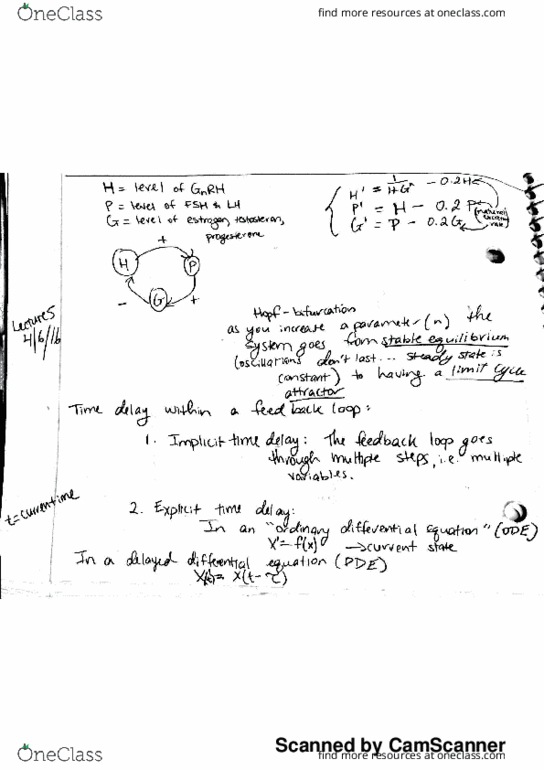 OneClass
find more resources at oneclass.com
H = level of GnRH
P = level of FSH & LH
G = level of estrogen, testosteron,
progesterone
H' = 1/1+G^n - 0.2H
P' = H - 0.2 P
G' = P - 0.2G
rate)
+
H
P
G
-
+
Lecture 5
4/6/16
Hopf-bifurcation
as you increase a parameter (n) the
system goes from stable equilibrium
(oscillations don't last... steady state is
constant) to having a limit cycle
attractor
Time delay within a feed back loop:
1. Implicit time delay: The feedback loop goes
through multiple steps, i.e. multiple
variables.
t=current time
2. Explicit time delay:
In an "ordinary differential equation" (ODE)
X'= f(x) →current state
In a delayed differential equation (PDE)
= X(t-τ)
Scanned by CamScanner
OneClass
find more resources at oneclass.com